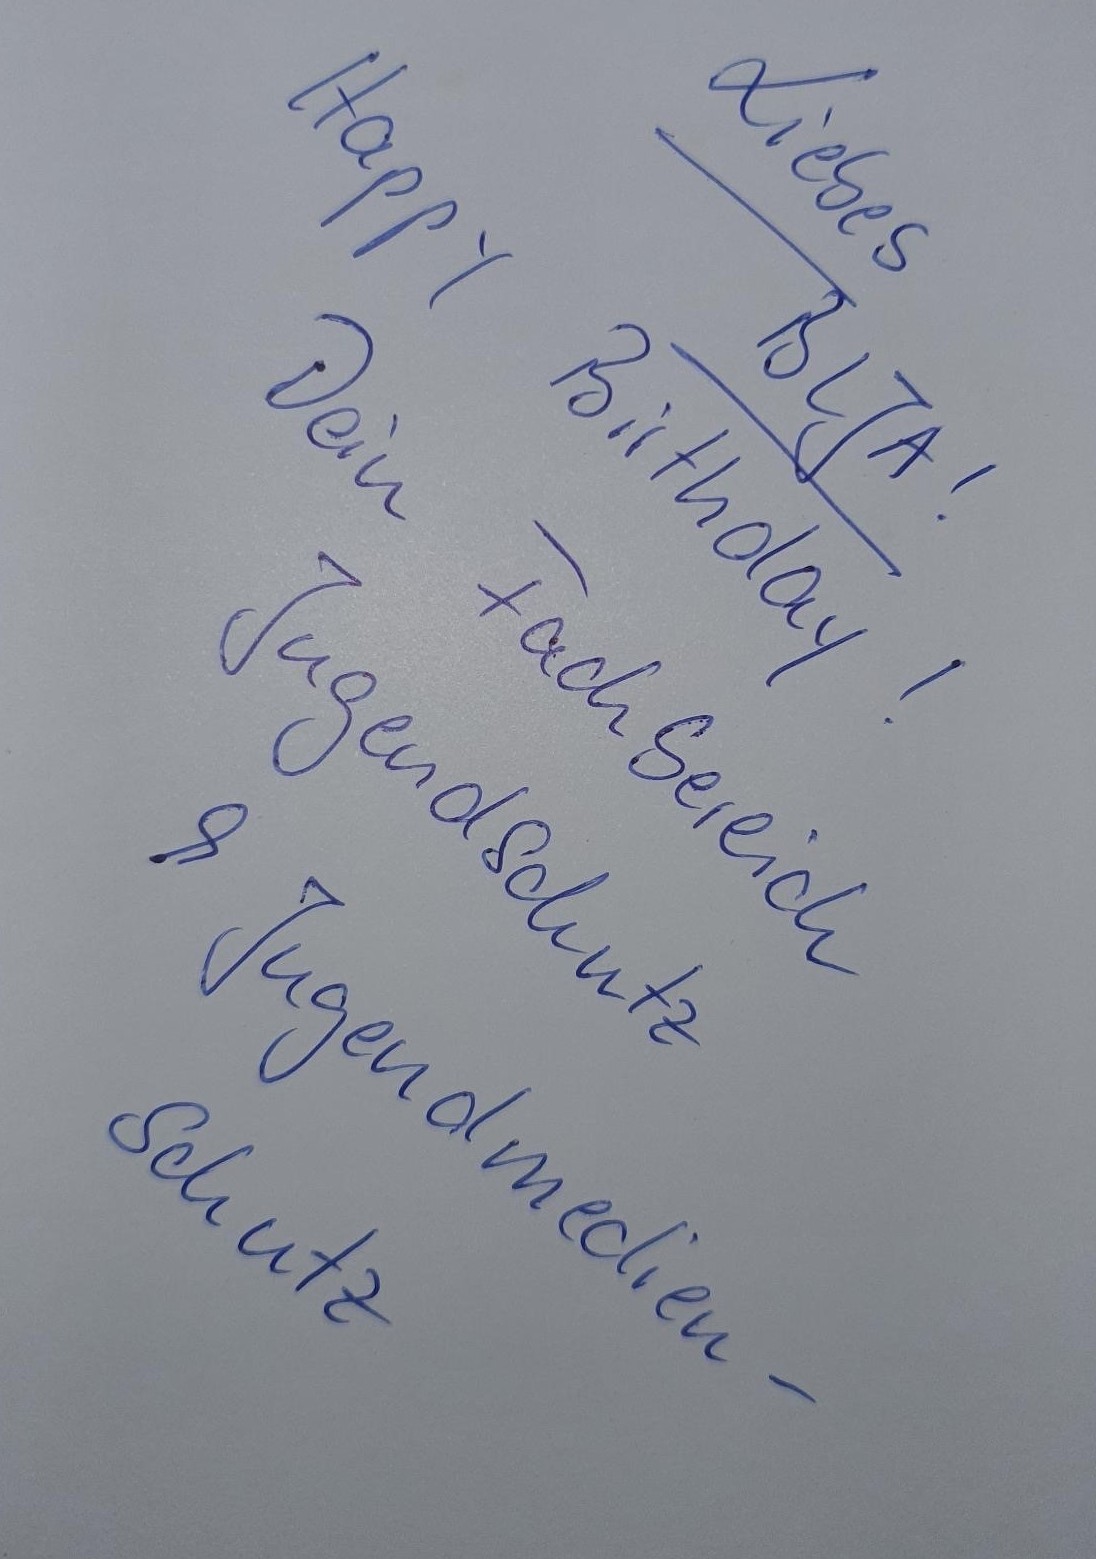 Liebes BLJA!
Happy Birthday!
Dein Fachbereich
Jugendschutz
& Jugendmedien-
schutz